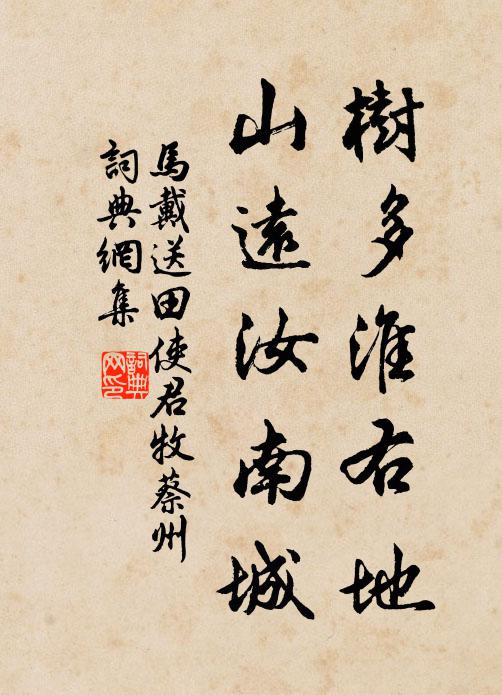 樹多淮右地
山遠汝南城
馬戴送田使君牧蔡州
詞典網集
詞典网印